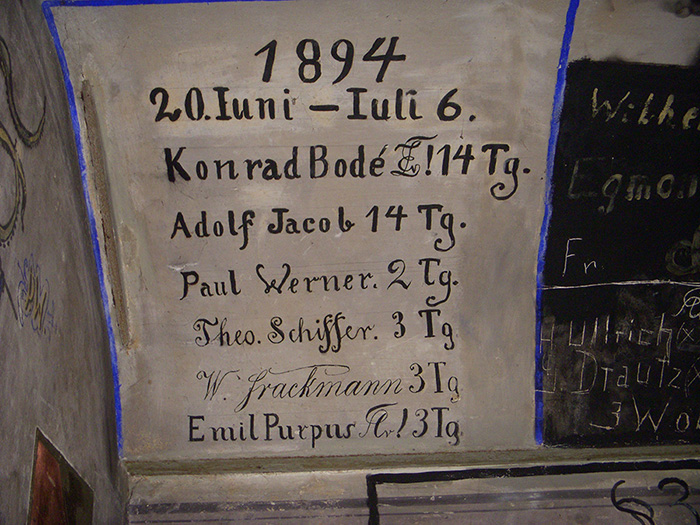 1894
20. Iuni – Iuli 6.
Konrad Bodé ! 14 Tg.
Adolf Jacob 14 Tg.
Paul Werner. 2 Tg.
Theo. Schiffer. 3 Tg
W. Frackmann 3 Tg
Emil Purpus ! 3 Tg
Egmon
Fr.
ullrich x
Drautz x
3 Wo